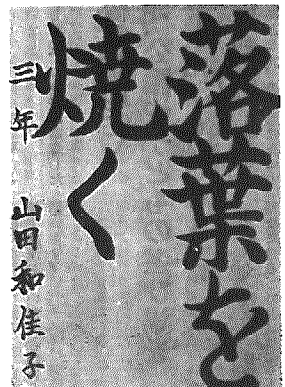 落葉を
焼く
三年 山田和佳子